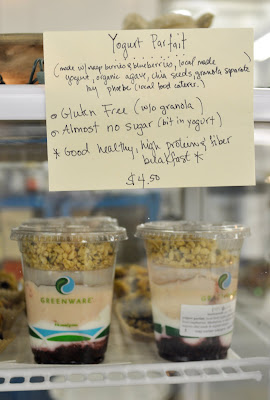 Yogurt Parfait
(made w/ nappi berries & blueberries, local made
yogurt, organic agave, chia seeds, granola separate
by phoebe (local food caterer.)
o Gluten Free (w/o granola)
o Almost no sugar (bit in yogurt)
* Good healthy, high protein & fiber
breakfast *
$4.50
GREENWARE
GREENWARE